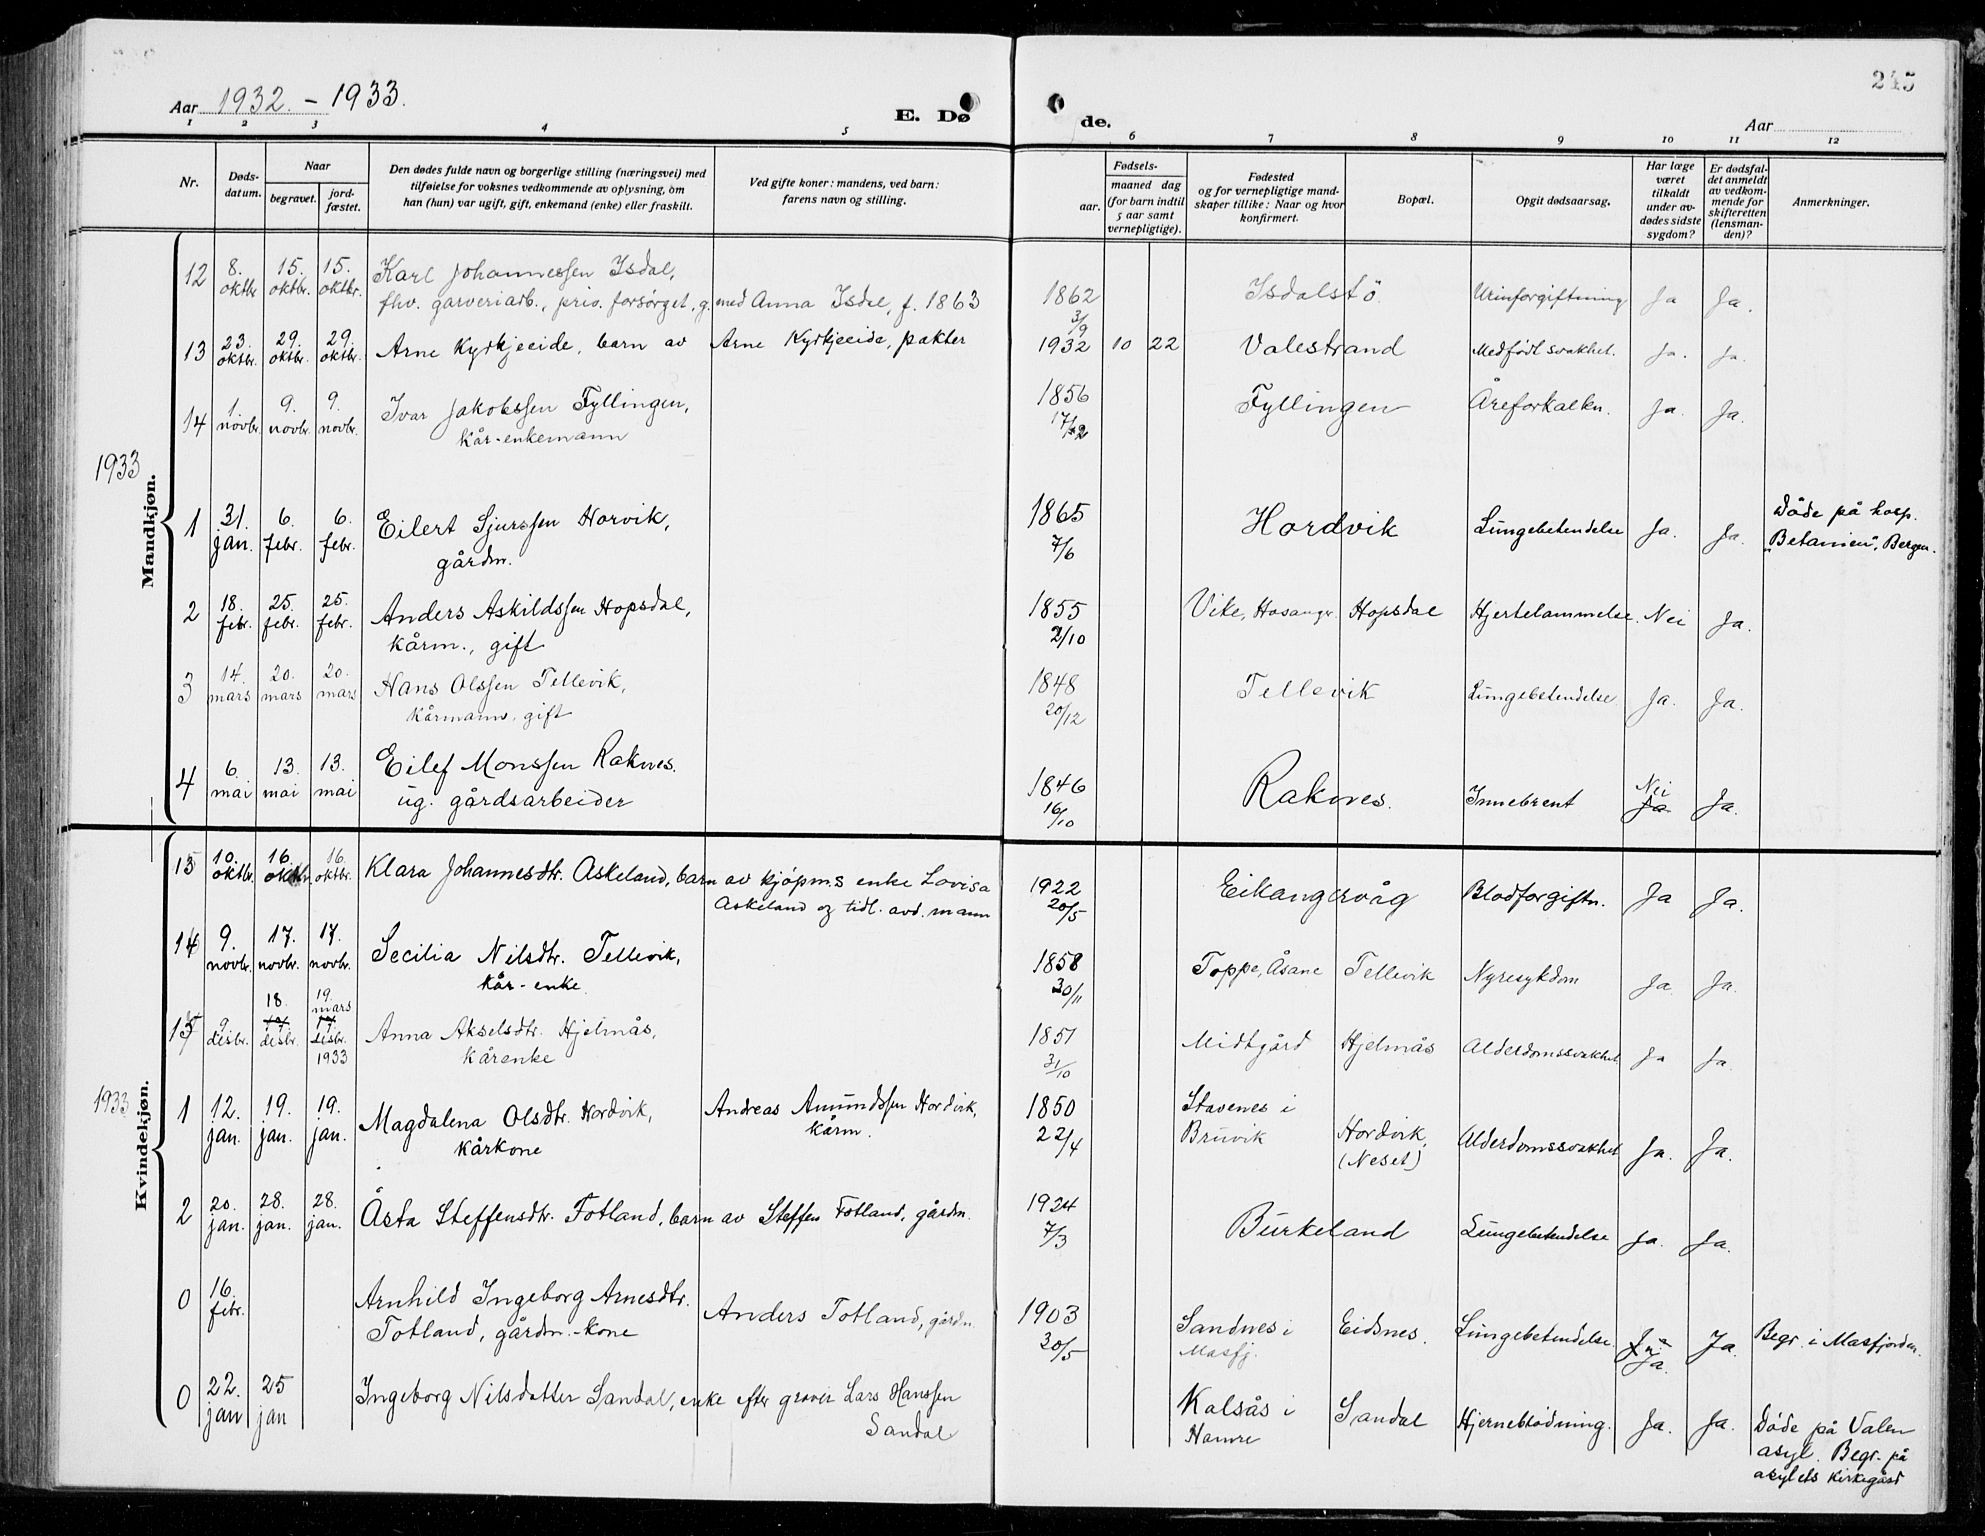 245
Aar 1932. - 1933.
E. Døde.
Aar
1 2 3 4 5 6 7 8 9 10 11 12
Nr.
Døds-datum.
Naar
begravet.
jord-fæstet.
Den dødes fulde navn og borgerlige stilling (næringsvei) med
tilføielse for voksnes vedkommende av oplysning, om
han (hun) var ugift, gift, enkemand (enke) eller fraskilt.
Ved gifte koner: mandens, ved barn:
farens navn og stilling.
Fødsels-
aar.
maaned dag
(for barn indtil
5 aar samt
vernepligtige).
Fødested
og for vernepligtige mand-
skaper tillike: Naar og hvor
konfirmert.
Bopæl.
Opgit dødsaarsag.
Har læge
været
tilkaldt
under av-
dødes sidste
sygdom?
Er dødsfal-
det anmeldt
av vedkom-
mende for
skifteretten
(lensman-
den)?
Anmerkninger.
Mandkjøn.
12 8. oktbr 15. oktbr. 15. oktbr. Karl Johannessen Isdal,
fhv. garveriarb., priv. forsørget, g. med Anna Isdal, f. 1863 1862 3/9 Isdalstö. Urinforgiftning Ja Ja.
13 23. oktbr. 29. oktbr. 29. oktbr. Arne Kyrkjeeide, barn av Arne Kyrkjeeide, pakter 1932 10 22 Valestrand Medfödt svakhet. Ja. Ja.
14 1. novbr. 9. novbr. 9. novbr. Ivar Jakobssen Fyllingen,
kår-enkemann 1856 17/12 Fyllingen Åreforkalkn. Ja. Ja.
1933
1 31. jan. 6. febr. 6. febr. Eilert Sjurssen Horvik,
gårdm. 1865 7/6 Hordvik Lungebetendelse Ja. Ja. Döde på hosp.
"Betanien", Bergen.
2 18. febr. 25. febr. 25. febr. Anders Askildssen Hopsdal,
kårm., gift 1855 2/10 Vike, Hosanger Hopsdal Hjertelammelse. Nei Ja.
3 14. mars 20. mars 20. mars Hans Olssen Tellevik,
kårmann, gift 1848 20/12 Tellevik Lungebetendelse. Ja. Ja.
4 6. mai 13. mai 13. mai Eilef Monssen Raknes.
ug. gårdsarbeider 1846 16/10 Raknes. Innebrent Nei Ja Ja.
Kvindekjøn.
13 10. oktbr. 16. oktbr. 16. oktbr. Klara Johannesdtr. Askeland, barn av kjöpm.s enke Lovisa
Askeland og tidl. avd. mann 1922 20/5 Eikangervåg Blodforgiftn. Ja Ja.
14 9. novbr. 17. novbr. 17. novbr. Secilia Nilsdtr. Tellevik,
kår-enke. 1858 30/11 Toppe, Åsane Tellevik Nyresykdom Ja Ja.
15 9. desbr. 18. 17 desbr. 19. mars 17 desbr. 1933 Anna Akselsdtr. Hjelmås,
kårenke 1851 31/10 Midtgård Hjelmås Alderdomssvakhet Ja Ja.
1933
1 12. jan. 19. jan. 19. jan. Magdalena Olsdtr. Hordvik,
kårkone Andreas Amundssen Hordvik,
kårm. 1850 22/4 Stavenes i
Bruvik Hordvik,
(Neset) Alderdomssvakhet Ja. Ja.
2 20. jan. 28. jan. 28. jan. Åsta Steffensdtr. Fotland, barn av Steffen Fotland, gårdm. 1924 7/3 Burkeland Lungebetendelse Ja. Ja.
0 16. febr. Arnhild Ingeborg Arnesdtr.
Totland, gårdm.-kone Anders Totland, gårdm. 1903 30/5 Sandnes i
Masfj. Eidsnes. Lungebetendelse Ja. Ja. Begr. i Masfjorden.
0 22. jan 25 jan Ingeborg Nilsdatter Sandal, enke efter graver Lars Hanssen
Sandal Kalsås i
Hamre Sandal Hjerneblödning. Ja. Ja. Döde på Valen
asyl. Begr. på
asylets kirkegård